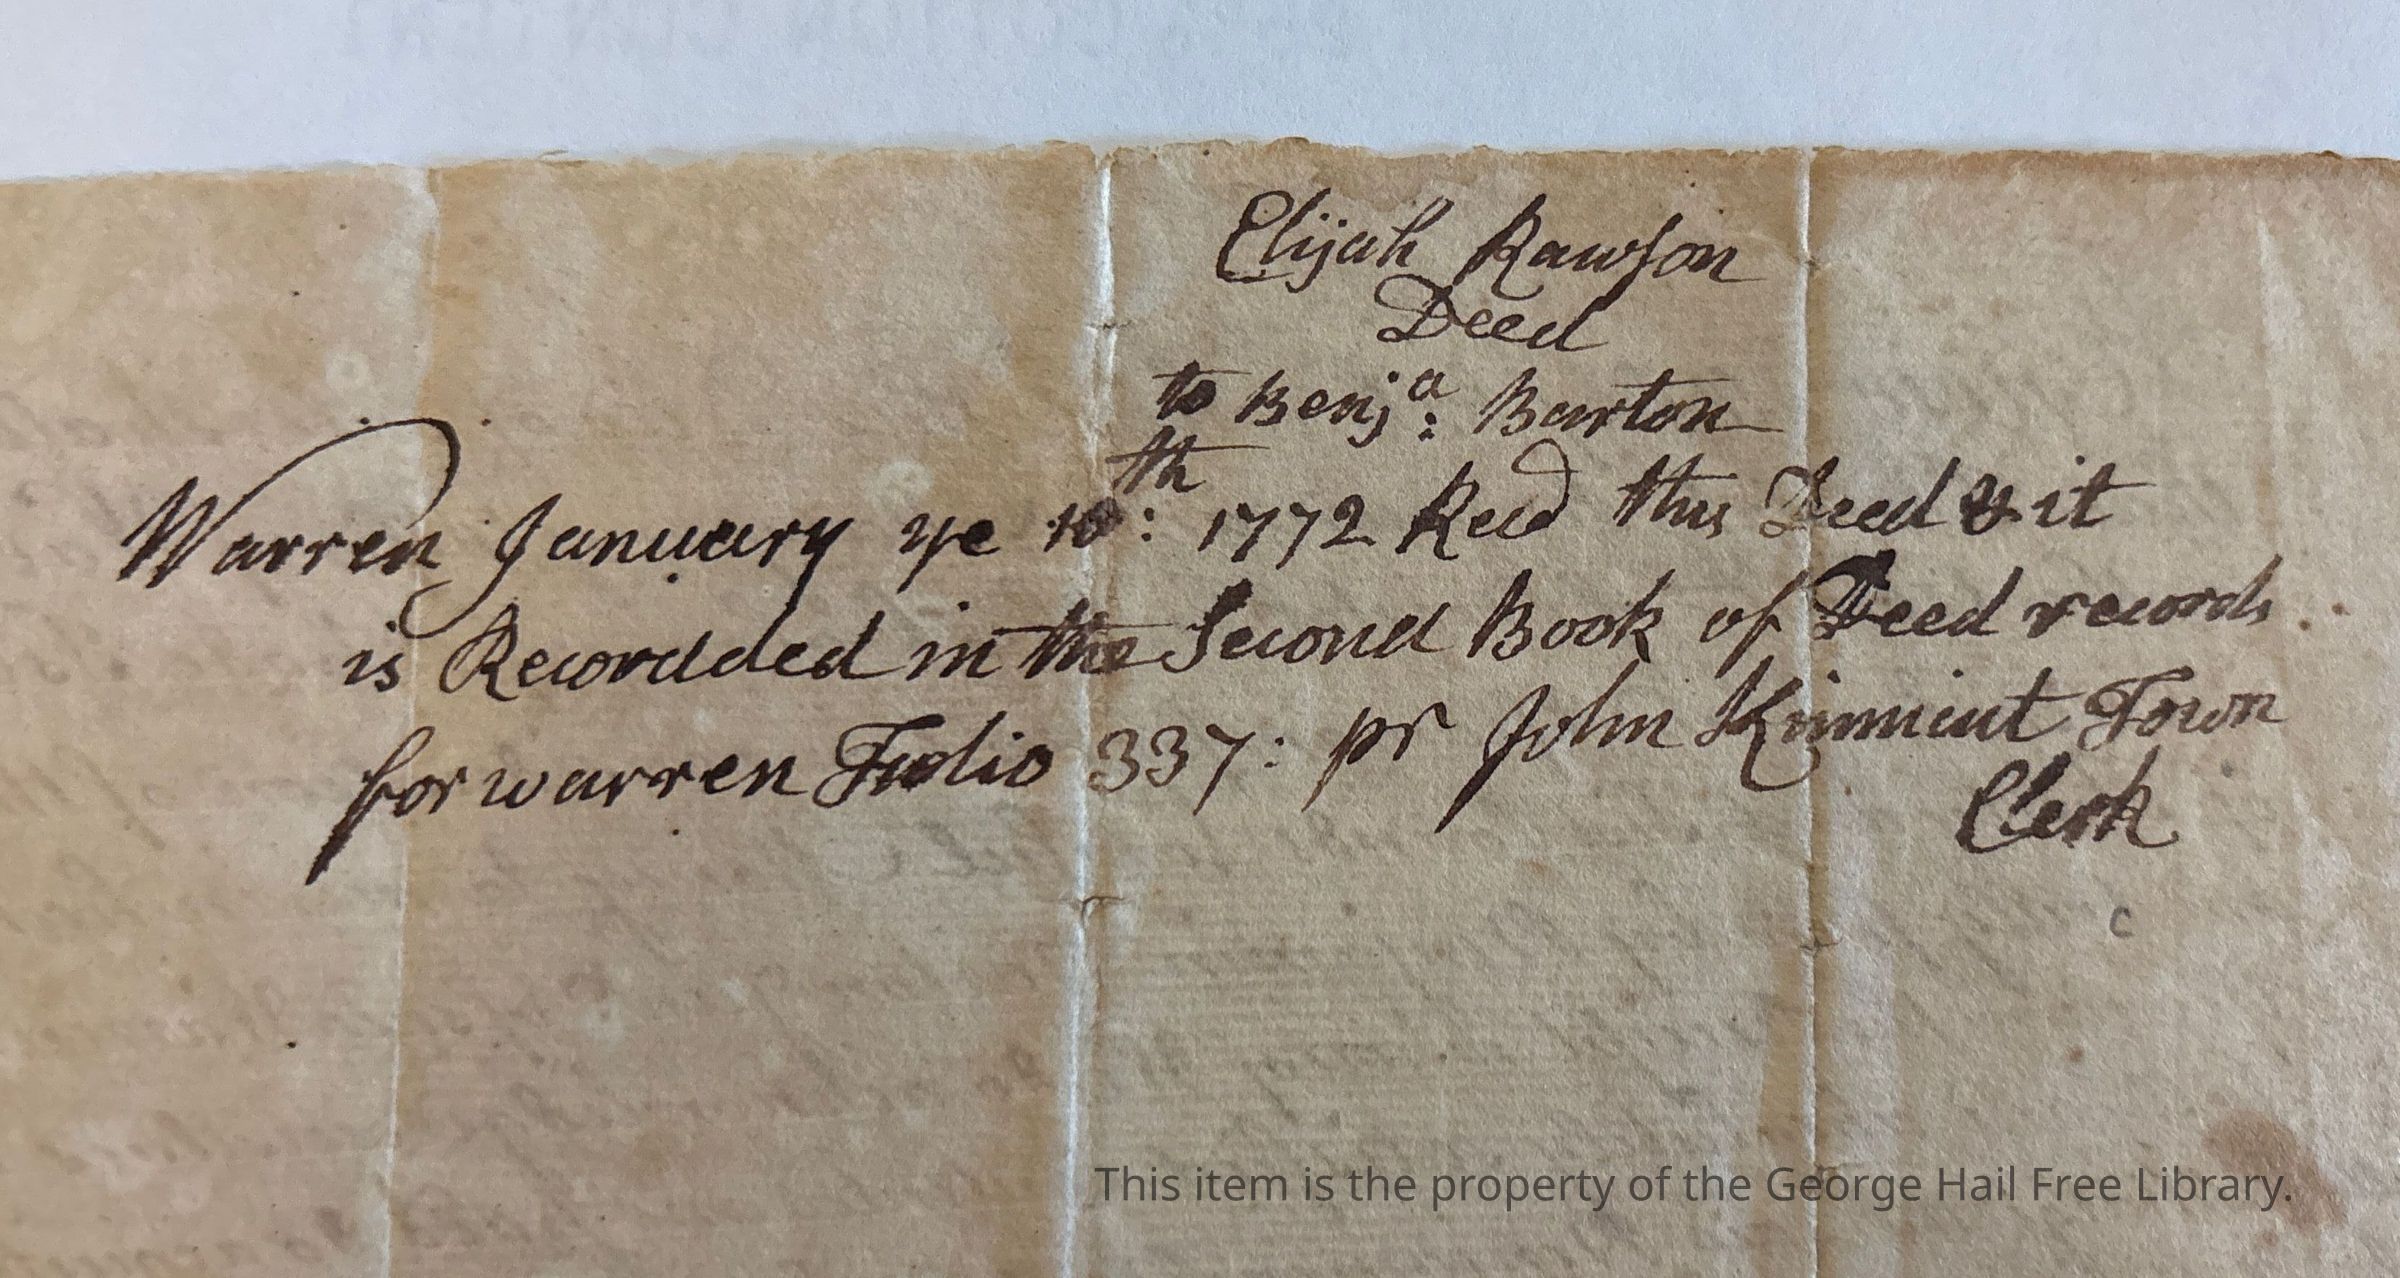 Elijah Rawson
Deed
to Benjª: Barton
Warren January ye 10th: 1772 Recd this Deed & it
is Recordded in the Second Book of Deed records
for warren Folio 337: pr John Kinnicut Town
Clerk
c
This item is the property of the George Hail Free Library.